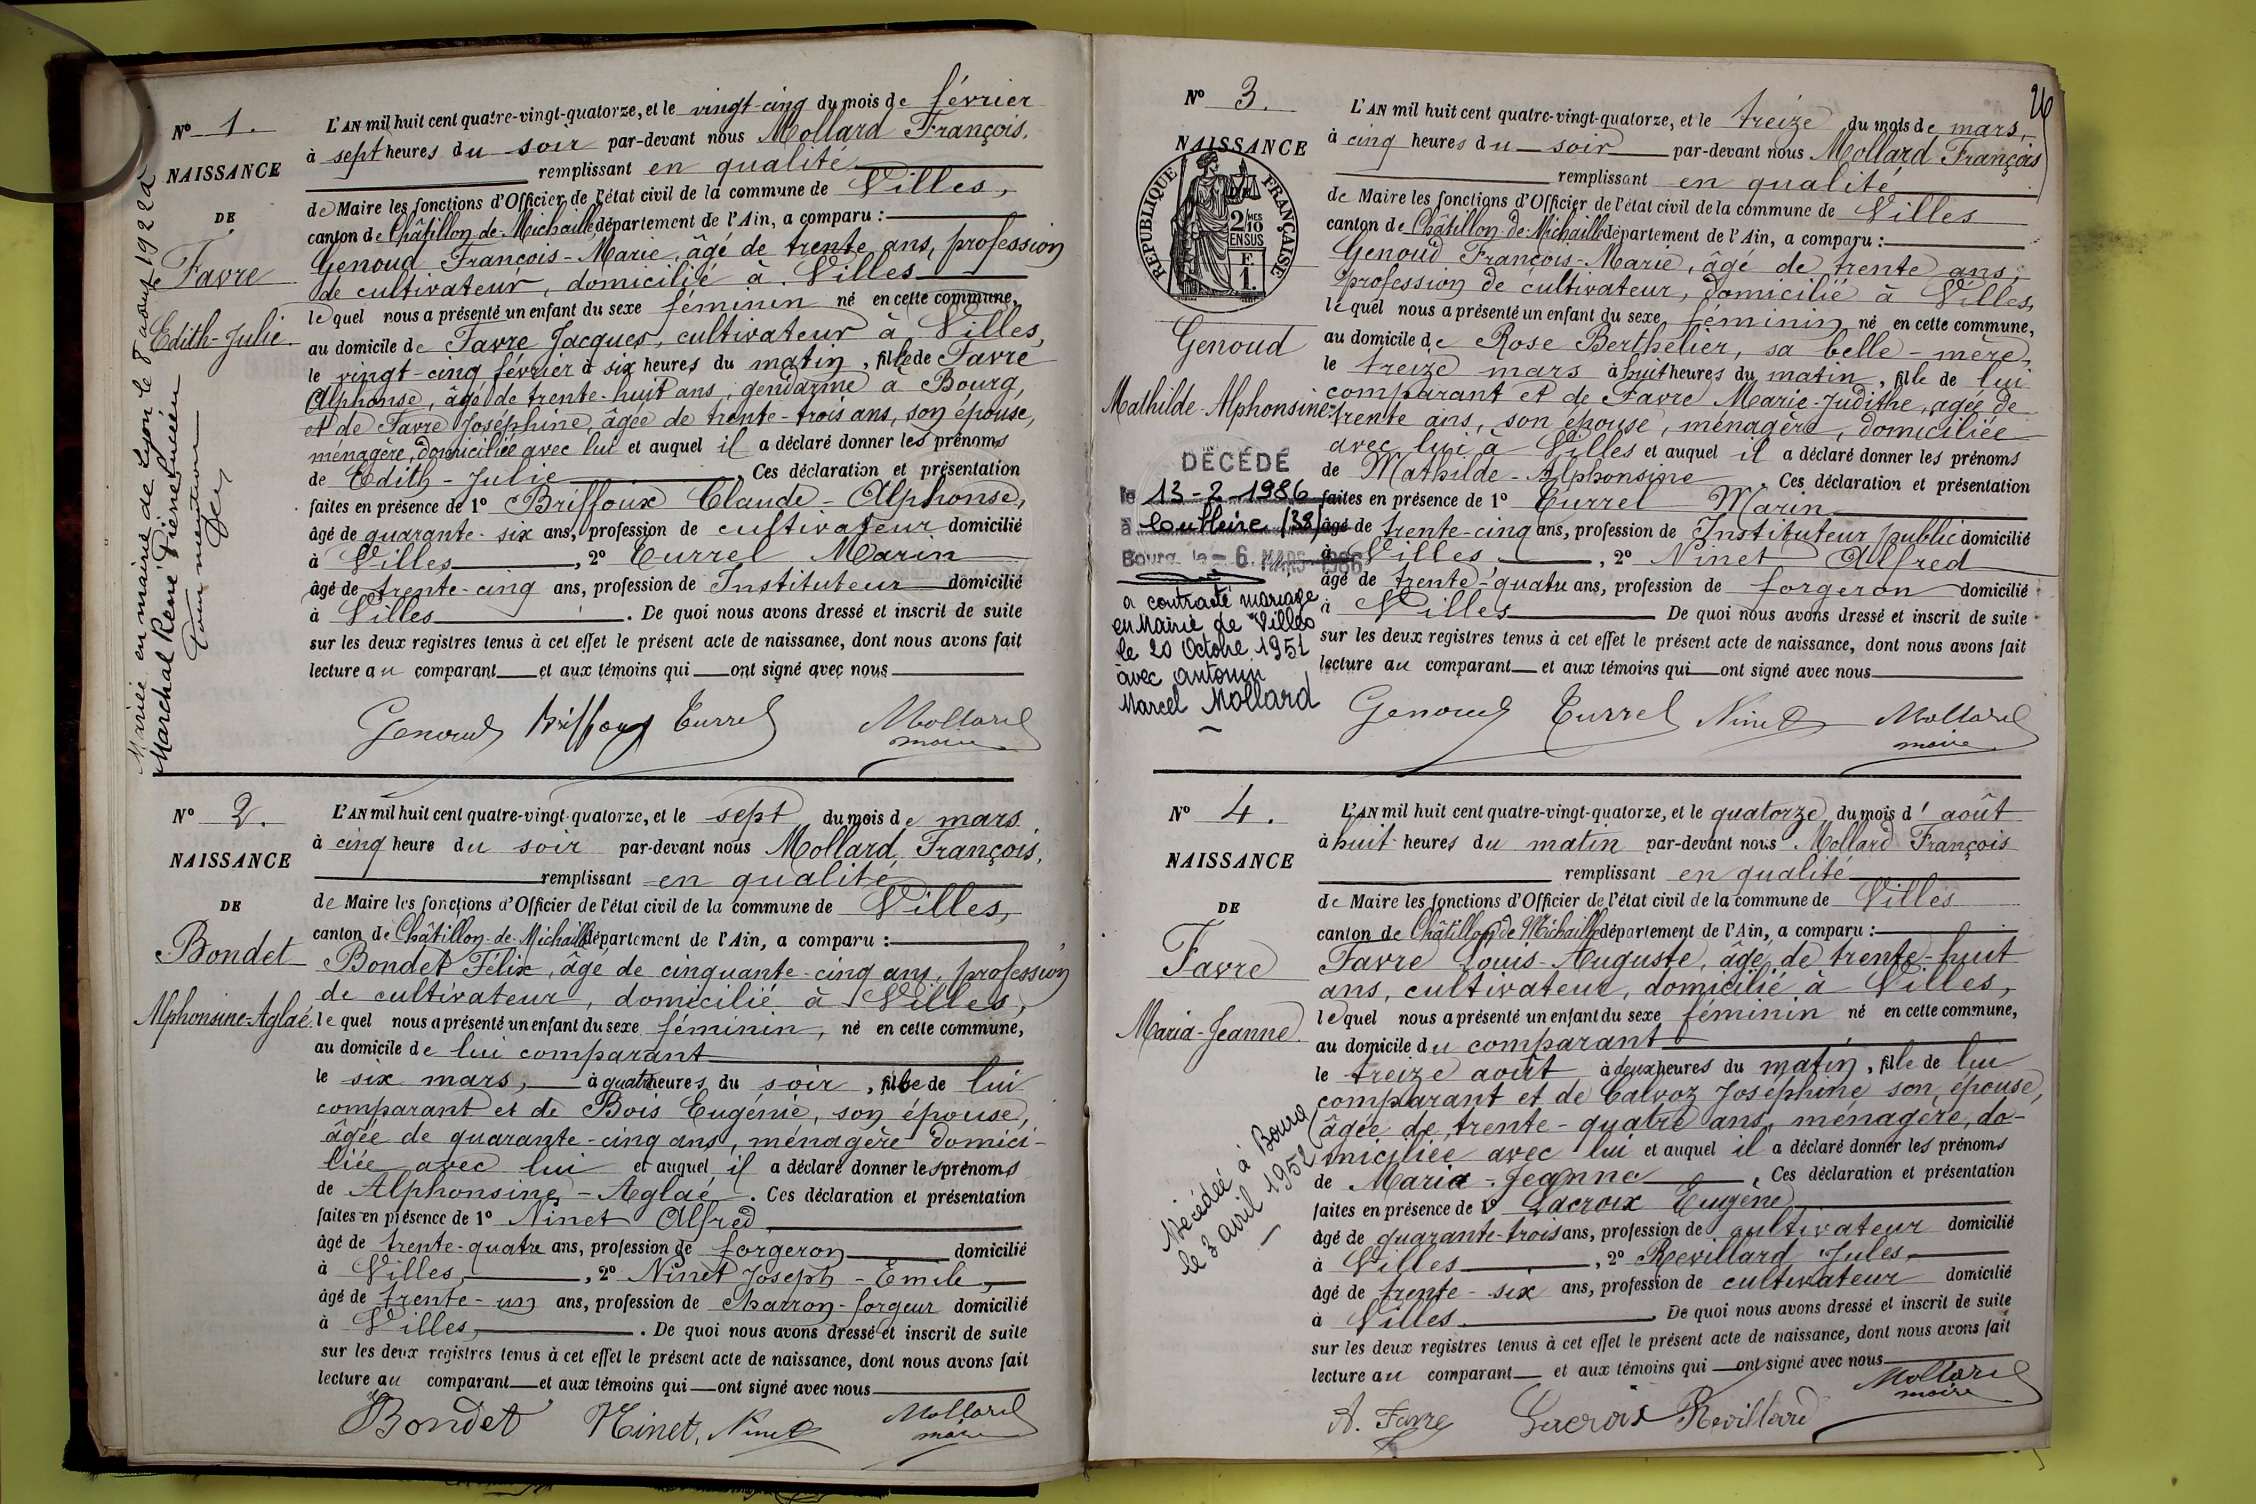 N° 1.
NAISSANCE
DE
Favre
Edith-Julie.
Mariée en mairie de Lyon le 8 août 1922 à
Marchal René Pierre Lucien
Pour mention
L'AN mil huit cent quatre-vingt-quatorze, et le vingt-cinq du mois de février
à sept heures du soir par-devant nous Mollard François,
remplissant en qualité
de Maire les fonctions d'Officier de l'état civil de la commune de Villes,
canton de Châtillon-de-Michaille département de l'Ain, a comparu :
Genoud François-Marie, âgé de trente ans, profession
de cultivateur, domicilié à Villes
lequel nous a présenté un enfant du sexe féminin né en cette commune,
au domicile de Favre Jacques, cultivateur à Villes,
le vingt-cinq février à six heures du matin, fille de Favre
Alphonse, âgé de trente-huit ans, gendarme à Bourg,
et de Favre Joséphine, âgée de trente-trois ans, son épouse,
ménagère, domiciliée avec lui et auquel il a déclaré donner les prénoms
de Edith-Julie. Ces déclaration et présentation
faites en présence de 1° Briffoux Claude-Alphonse,
âgé de quarante-six ans, profession de cultivateur domicilié
à Villes, 2° Turrel Marin
âgé de trente-cinq ans, profession de Instituteur domicilié
à Villes. De quoi nous avons dressé et inscrit de suite
sur les deux registres tenus à cet effet le présent acte de naissance, dont nous avons fait
lecture au comparant et aux témoins qui ont signé avec nous
Genoud Briffoux Turrel Mollard
maire
N° 2.
NAISSANCE
DE
Bondet
Alphonsine-Aglaé.
L'AN mil huit cent quatre-vingt-quatorze, et le sept du mois de mars
à cinq heure du soir par-devant nous Mollard, François,
remplissant en qualité
de Maire les fonctions d'Officier de l'état civil de la commune de Villes,
canton de Châtillon-de-Michaille département de l'Ain, a comparu :
Bondet Félix, âgé de cinquante-cinq ans, profession
de cultivateur, domicilié à Villes,
lequel nous a présenté un enfant du sexe féminin, né en cette commune,
au domicile de lui comparant
le six mars, à quatre heures du soir, fille de lui
comparant et de Bois Eugénie, son épouse,
âgée de quarante-cinq ans, ménagère domici-
liée avec lui et auquel il a déclaré donner les prénoms
de Alphonsine-Aglaé. Ces déclaration et présentation
faites en présence de 1° Ninet Alfred,
âgé de trente-quatre ans, profession de forgeron domicilié
à Villes, 2° Ninet Joseph-Emile,
âgé de trente-un ans, profession de charron-forgeur domicilié
à Villes, . De quoi nous avons dressé et inscrit de suite
sur les deux registres tenus à cet effet le présent acte de naissance, dont nous avons fait
lecture au comparant et aux témoins qui ont signé avec nous
Bondet Ninet, Ninet Mollard
maire
26
N° 3.
NAISSANCE
RÉPUBLIQUE FRANÇAISE
2/10 MES
EN SUS
F.
1.
Genoud
Mathilde-Alphonsine.
DÉCÉDÉ
le 13-2-1986
à Corbeire (38)
Bourg, le - 6 MARS 1986
a contracté mariage
en Mairie de Villes
le 20 Octobre 1951
avec Antonin
Marcel Mollard
L'AN mil huit cent quatre-vingt-quatorze, et le treize du mois de mars,
à cinq heures du soir par-devant nous Mollard François
remplissant en qualité
de Maire les fonctions d'Officier de l'état civil de la commune de Villes
canton de Châtillon-de-Michaille département de l'Ain, a comparu :
Genoud François-Marie, âgé de trente ans,
profession de cultivateur, domicilié à Villes,
lequel nous a présenté un enfant du sexe féminin né en cette commune,
au domicile de Rose Berthelier, sa belle-mère,
le treize mars à huit heures du matin, fille de lui
comparant et de Favre Marie-Judithe, agée de
trente ans, son épouse, ménagère, domiciliée
avec lui à Villes et auquel il a déclaré donner les prénoms
de Mathilde-Alphonsine. Ces déclaration et présentation
faites en présence de 1° Turrel Marin
âgé de trente-cinq ans, profession de Instituteur public domicilié
à Villes, 2° Ninet Alfred
âgé de trente-quatre ans, profession de forgeron domicilié
à Villes De quoi nous avons dressé et inscrit de suite
sur les deux registres tenus à cet effet le présent acte de naissance, dont nous avons fait
lecture au comparant et aux témoins qui ont signé avec nous
Genoud Turrel Ninet Mollard
maire
N° 4.
NAISSANCE
DE
Favre
Maria-Jeanne.
Décédée à Bourg
le 3 avril 1952
L'AN mil huit cent quatre-vingt-quatorze, et le quatorze du mois d'août
à huit heures du matin par-devant nous Mollard François
remplissant en qualité
de Maire les fonctions d'Officier de l'état civil de la commune de Villes
canton de Châtillon de Michaille département de l'Ain, a comparu :
Favre Louis-Auguste, âgé de trente-huit
ans, cultivateur, domicilié à Villes,
lequel nous a présenté un enfant du sexe féminin né en cette commune,
au domicile du comparant
le treize août à deux heures du matin, fille de lui
comparant et de Calvoz Joséphine son épouse,
âgée de trente-quatre ans, ménagère, do-
miciliée avec lui et auquel il a déclaré donner les prénoms
de Maria-Jeanne. Ces déclaration et présentation
faites en présence de 1° Lacroix Eugène
âgé de quarante-trois ans, profession de cultivateur domicilié
à Villes, 2° Revillard Jules,
âgé de trente-six ans, profession de cultivateur domicilié
à Villes. De quoi nous avons dressé et inscrit de suite
sur les deux registres tenus à cet effet le présent acte de naissance, dont nous avons fait
lecture au comparant et aux témoins qui ont signé avec nous
A. Favre Lacroix Revillard Mollard
maire